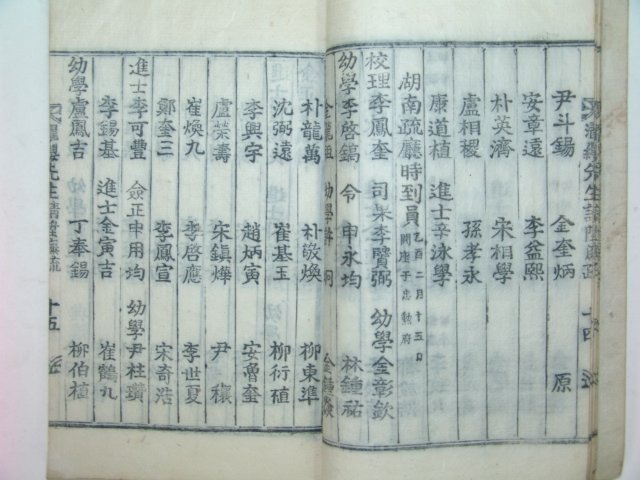 尹斗錫 金奎炳 原
安章遠 李益熙
朴英濟 宋相學
盧相稷 孫孝永
康道植 進士辛泳學
湖南疏廳時到員 乙酉二月十五日
校理李鳳奎 司果李賢弼 幼學金彰欽
幼學李啓鎬 令申永均 林鍾祐
朴龍萬 朴敬煥 柳東準
沈弼遠 崔基玉 柳衍植
李興宇 趙炳寅 安魯奎
盧榮壽 宋鎭燁 尹穰
崔煥九 李啓應 李世夏
鄭奎三 李鳳宣 宋奇浩
進士李可豐 僉正申用均 幼學尹柱瓚
李錫基 進士金寅吉 崔鶴九
幼學盧鳳吉 丁奉錫 柳伯植
先生請 疏 十五